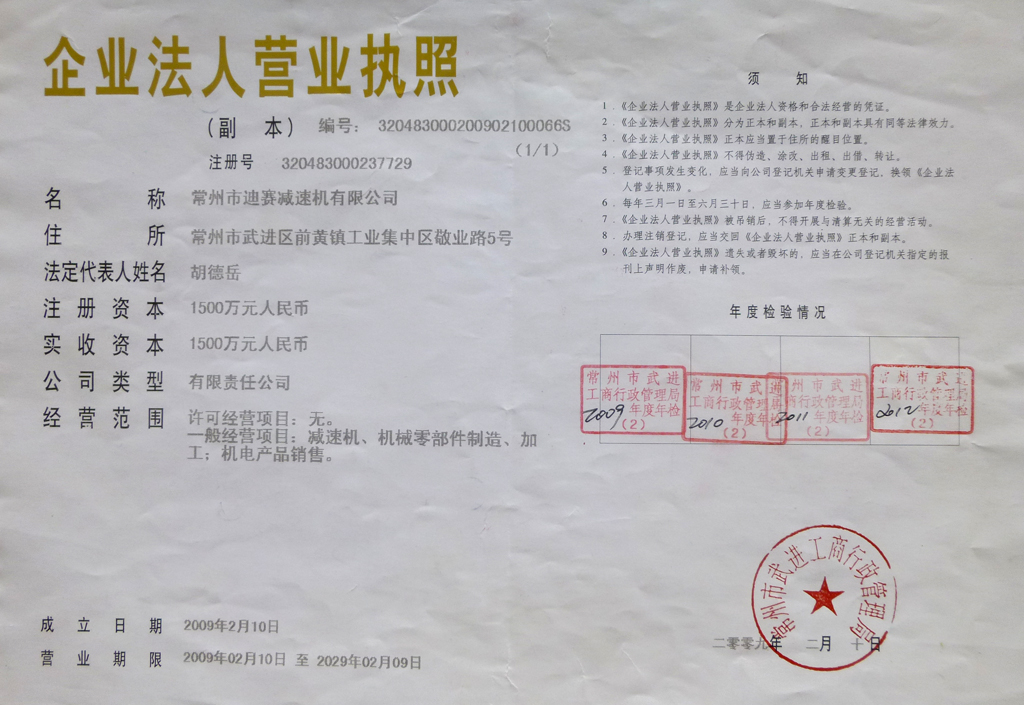 企业法人营业执照
（副 本） 编号： 320483000200902100066S
（1/1）
注册号 320483000237729
名 称 常州市迪赛减速机有限公司
住 所 常州市武进区前黄镇工业集中区敬业路5号
法定代表人姓名 胡德岳
注册资本 1500万元人民币
实收资本 1500万元人民币
公司类型 有限责任公司
经营范围 许可经营项目：无。
一般经营项目：减速机、机械零部件制造、加
工；机电产品销售。
成立日期 2009年2月10日
营业期限 2009年02月10日 至 2029年02月09日
须 知
1．《企业法人营业执照》是企业法人资格和合法经营的凭证。
2．《企业法人营业执照》分为正本和副本，正本和副本具有同等法律效力。
3．《企业法人营业执照》正本应当置于住所的醒目位置。
4．《企业法人营业执照》不得伪造、涂改、出租、出借、转让。
5．登记事项发生变化，应当向公司登记机关申请变更登记，换领《企业法
人营业执照》。
6．每年三月一日至六月三十日，应当参加年度检验。
7．《企业法人营业执照》被吊销后，不得开展与清算无关的经营活动。
8．办理注销登记，应当交回《企业法人营业执照》正本和副本。
9．《企业法人营业执照》遗失或者毁坏的，应当在公司登记机关指定的报
刊上声明作废，申请补领。
年度检验情况
常州市武进
工商行政管理局
2009年度年检
（2）
常州市武进
工商行政管理局
2010年度年检
（2）
常州市武进
工商行政管理局
2011年度年检
（2）
常州市武进
工商行政管理局
2012年度年检
（2）
常州市武进工商行政管理局
二零零九年 二月 十日